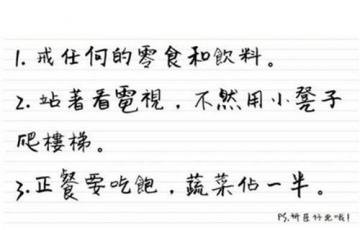 1. 戒任何的零食和飲料。
2. 站著看電視，不然用小凳子
爬樓梯。
3. 正餐要吃飽，蔬菜佔一半。